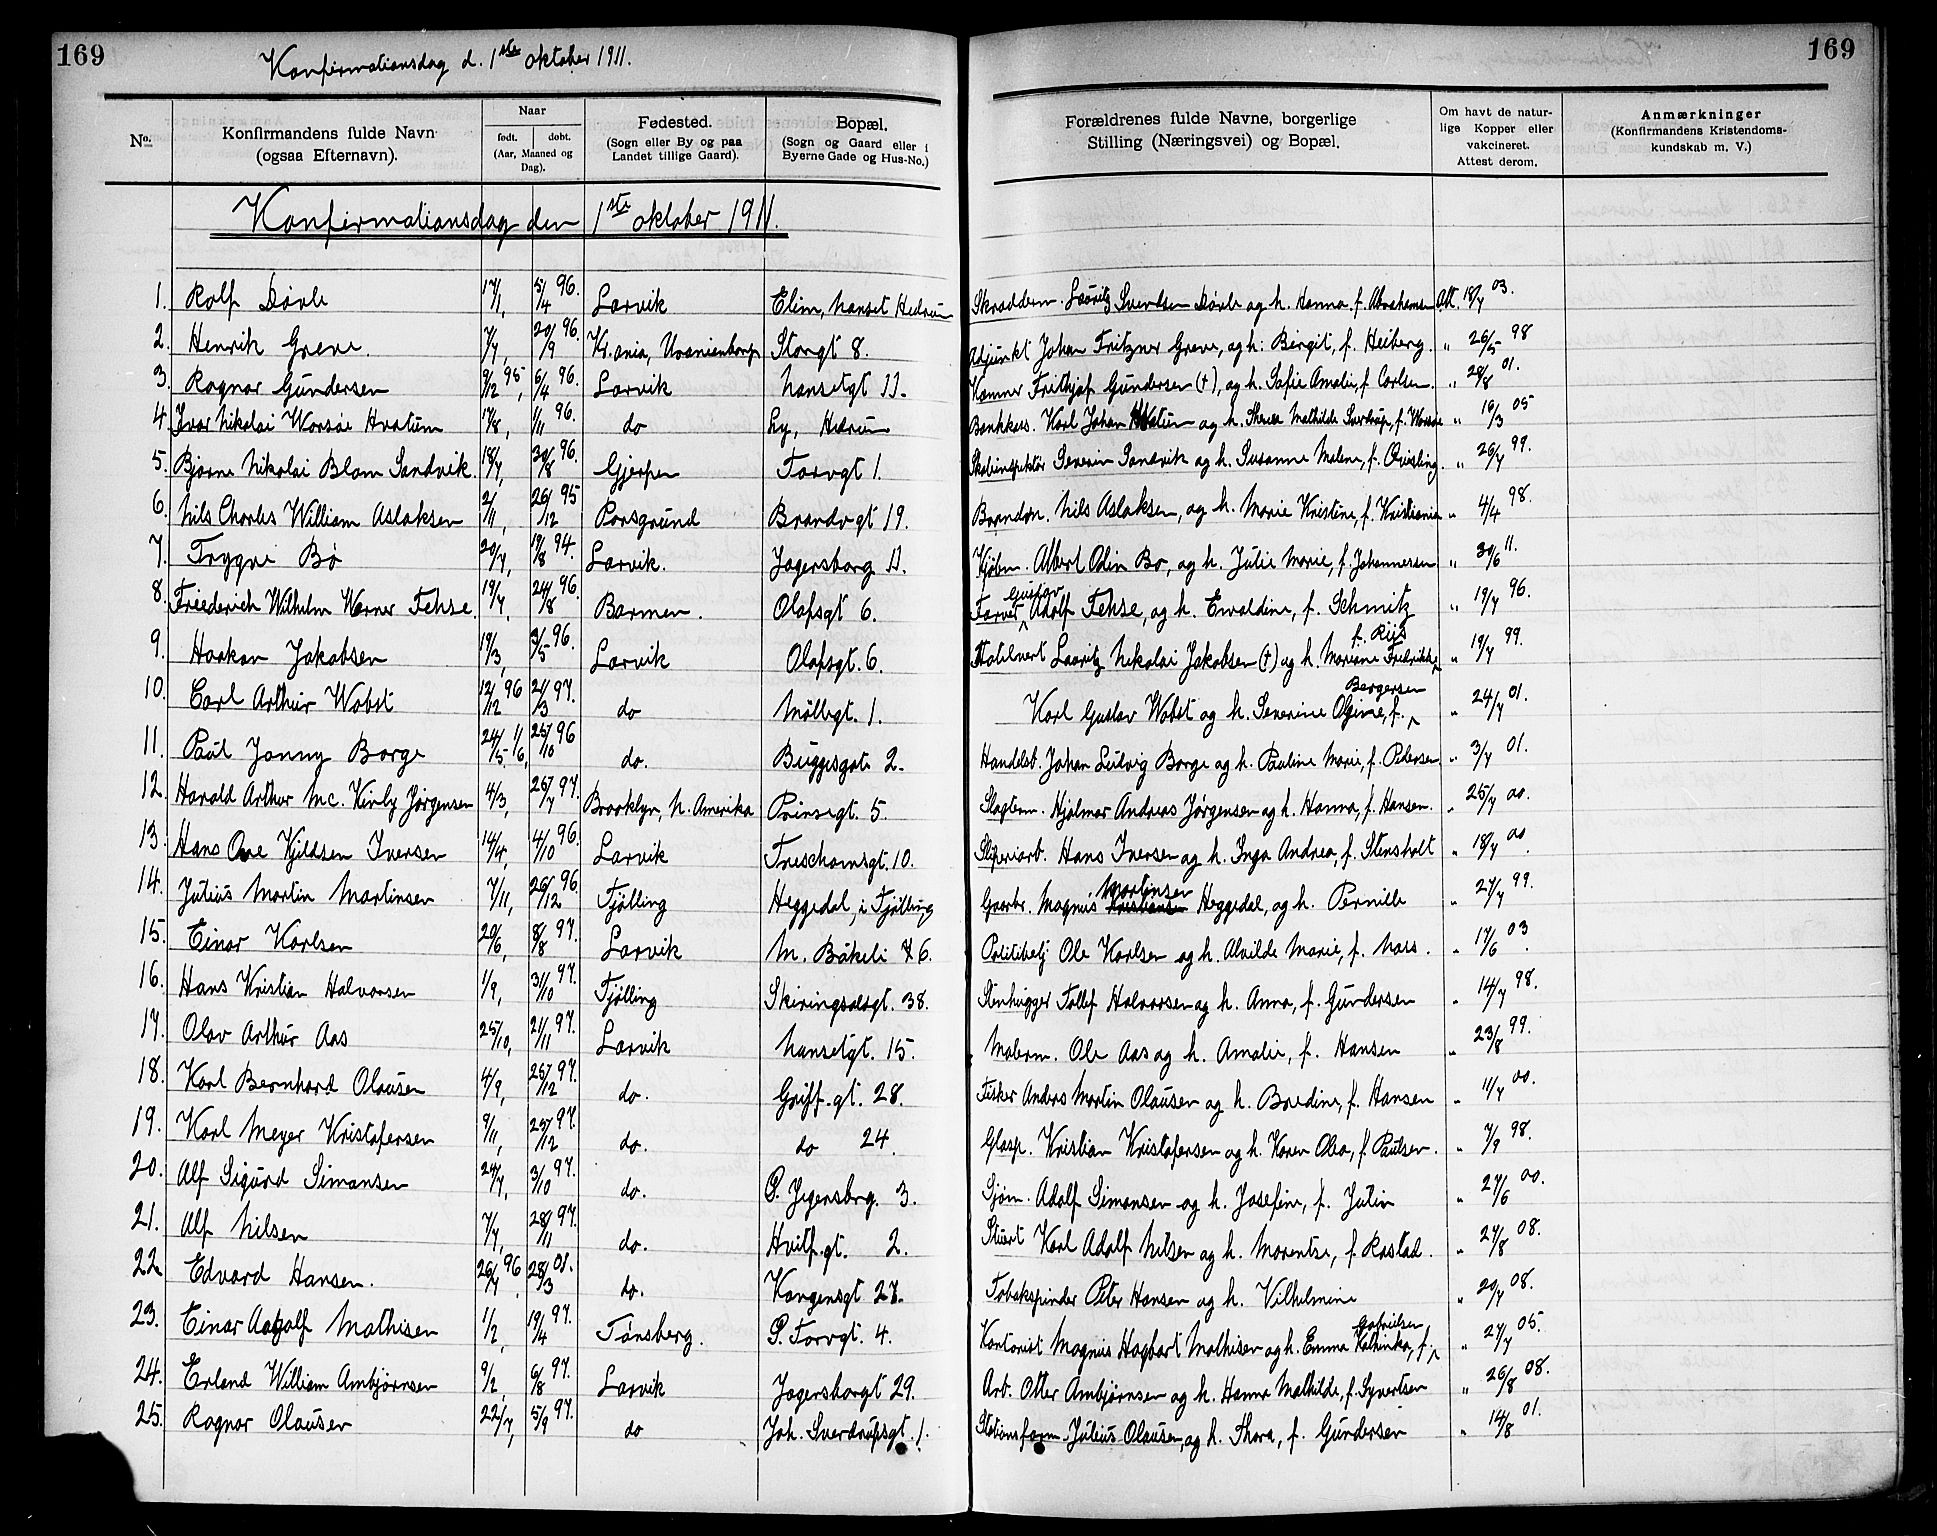 169
Konfirmationsdag d. 1ste oktober 1911.
169
No.
Konfirmandens fulde Navn (ogsaa Efternavn).
Naar
født. døbt.
(Aar, Maaned og Dag).
Fødested.
(Sogn eller By og paa Landet tillige Gaard).
Bopæl.
(Sogn og Gaard eller i Byerne Gade og Hus-No.)
Forældrenes fulde Navne, borgerlige Stilling (Næringsvei) og Bopæl.
Om havt de naturlige Kopper eller vakcineret. Attest derom.
Anmærkninger
(Konfirmandens Kristendomskundskab m. V.)
Konfirmationsdag den 1ste oktober 1911.
1. Rolf Dørle 17/1, 5/4 96. Larvik Elim, Nanset Hedrum Skræddem. Lauritz Svendsen Dørle og h. Hanna, f. Abrahamsen Att. 18/7 03.
2. Henrik Greve. 7/7, 20/9 96. Kr.ania, Uranienborg Storgt 8. Adjunkt Johan Fritzner Greve, og h: Birgit, f. Heiberg. " 26/5 98
3. Ragnar Gundersen 9/12 95, 6/4 96. Larvik Nansetgt 11. Frithjof Gundersen (†), og h. Sofie Amalie, f. Carlsen. " 28/8 01.
4. Ivar Nikolai Worsøe Hvatum 17/8, 1/11 96. do Ly, Hedrum Bankkas. Karl Johan Hvatum og h. Mathilde Sverdrup, f. Worsøe " 16/3 05
5. Bjarne Nikolai Blom Sandvik. 18/7, 30/8 96. Gjerpen Torvgt 1. Skoleinspektør Severin Sandvik og h. Susanne Malene, f. Qvisling. " 26/7 99.
6. Nils Charles William Aslaksen 2/11, 26/12 95 Porsgrund Brandvgt 19. Brandm. Nils Aslaksen, og h. Marie Kristine, f. Kristiania " 4/4 98.
7. Trygve Bø 20/7, 19/8 94. Larvik. Jegersborg 11. Kjøbm. Albert Odin Bø, og h. Julie Marie, f. Johannessen " 30/6 11.
8. Friederich Wilhelm Werner Fehse. 19/7, 24/8 96. Barmen. Olafsgt 6. Farver Gustav Adolf Fehse, og h. Ewaldine, f. Schmitz " 19/7 96.
9. Haakon Jakobsen 19/3, 3/5 96. Larvik Olafsgt. 6. Hotelvert Lauritz Nikolai Jakobsen (†) og h. Mariane Fredrikke, f. Riis " 19/7 99.
10. Carl Arthur Wobst 12/12 96 21/3 97. do Møllegt. 1. Karl Gustav Wobst og h. Severine Olgine, f. Bergersen " 24/7 01.
11. Paul Janny Borge 24/5. 96, 25/10 96 do. Buggesgate 2. Handelsb. Johan Ludvig Borge og h. Pauline Marie, f. Pedersen " 3/7 01.
12. Harald Arthur Mc. Kinly Jørgensen 4/3, 25/7 97. Brooklyn, N. Amerika Prinsegt. 5. Slagterm. Hjalmar Andreas Jørgensen og h. Hanna, f. Hansen. " 25/7 00.
13. Hans Ove Kjeldsen Iversen 14/4, 4/10 96. Larvik Treschowsgt. 10. Sliperiarb. Hans Iversen og h. Inga Andrea, f. Stensholt " 18/7 00.
14. Julius Martin Martinsen 7/11, 26/12 96. Tjølling Heggedal, i Tjølling Gaarbr. Magnus Martinsen Heggedal, og h. Pernille " 27/7 99.
15. Einar Karlsen 20/6, 8/8 97. Larvik M. Bøkeli 6. Politibetj Ole Karlsen og h. Alvilde Marie, f. Næss. " 17/6 03.
16. Hans Kristian Halvorsen 1/9, 31/10 97. Tjølling Skiringsalsgt. 38. Stenhugger Tollef Halvorsen og h. Anna, f. Gundersen " 14/7 98.
17. Olav Arthur Aas 25/10, 21/11 97. Larvik Nansetgt. 15. Malerm. Ole Aas og h. Amalie, f. Hansen " 23/8 99.
18. Karl Bernhard Olausen 4/9, 25/12 97. do. Griff.gt. 28. Fisker Anders Martin Olausen og h. Bardine, f. Hansen " 11/7 00.
19. Karl Meyer Kristofersen 9/11, 25/12 97. do. do 24. Glasp. Kristian Kristofersen og h. Karen Olea, f. Paulsen. " 7/9 98.
20. Alf Sigurd Simonsen 24/7, 3/10 97. do. Ø. Jegersbrg. 3. Sjøm. Adolf Simonsen og h. Josefine, f. Julin " 27/6 00.
21. Alf Nilsen 7/7, 28/11 97. do. Hvitf.gt. 2. Stuert Karl Adolf Nilsen og h. Marentse, f. Rastad. " 27/8 08.
22. Edvard Hansen. 26/7 96, 28/3 01. do. Kongensgt 27. Tobakspinder Peter Hansen og h. Vilhelmine " 20/7 08.
23. Einar Adolf Mathisen 1/2, 19/4 97. Tønsberg. Ø. Torvgt. 4. Kontorist Magnus Hagbart Mathisen og h. Emma Kathinka, f. Gabrielsen " 27/7 05.
24. Erland William Ambjørnsen 9/2, 6/8 97. Larvik Jegersborgt 29. Arb. Otter Ambjørnsen og h. Hanna Mathilde, f. Syvertsen " 26/8 08.
25. Ragnar Olausen 22/7, 5/9 97. do Joh. Sverdrupsgt. 1. Stationsform. Julius Olausen, og h. Thora, f. Gundersen " 14/8 01.